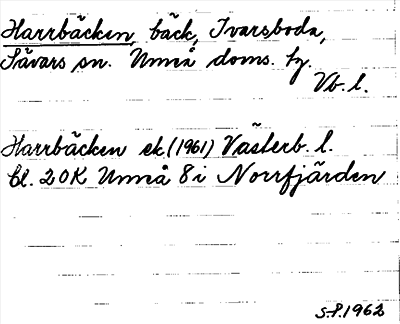 Harrbäcken, bäck, Ivarsboda,
Sävars sn. Umeå doms. hg.
Vb. l.
Harrbäcken ek. (1961) Västerb. l.
bl. 20K Umeå 8i Norrfjärden
S.P. 1962